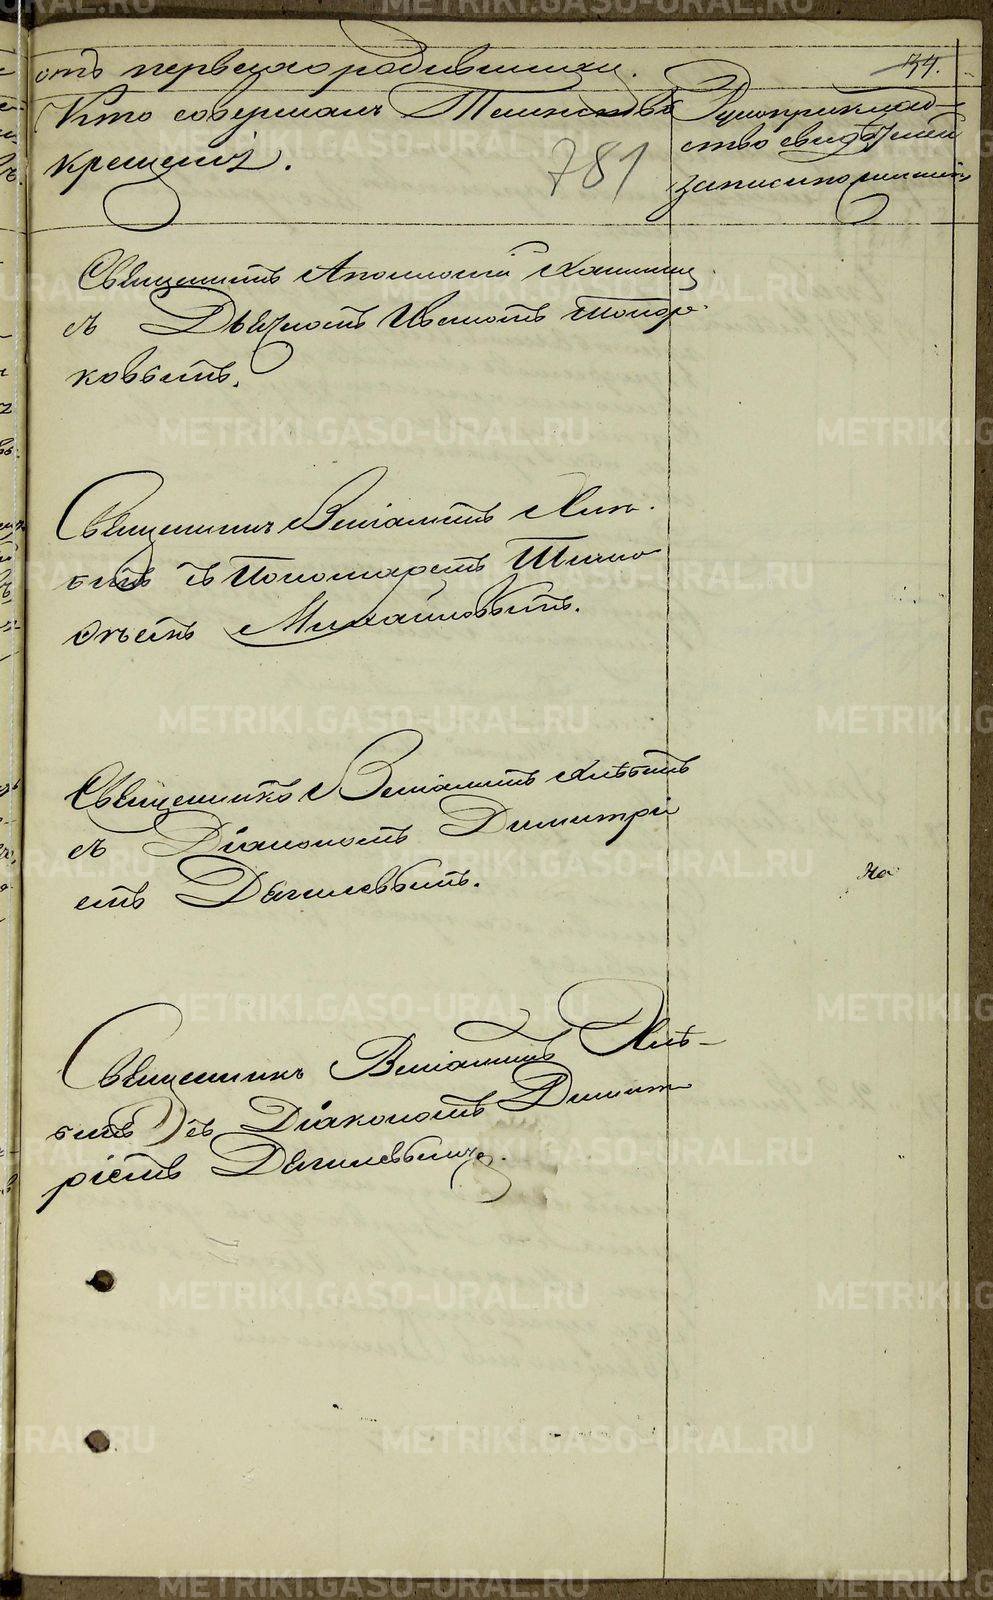 отъ перваго родившихся.
74.
Кто совершалъ Таинство
крещенія.
781
Рукоприклад-
ство свидѣтелей
записи по желанію
Священникъ Аполлоній
съ Дьячкомъ Иваномъ Топор-
ковымъ.
Священникъ Веніаминъ Хлы-
нымъ съ Пономаремъ Тимо-
ѳеемъ Михайловымъ.
Священникъ Веніаминъ
съ Діакономъ Димитрі-
емъ Дягилевымъ.
Священникъ Веніаминъ
съ Діакономъ Димит-
ріемъ Дягилевымъ.
METRIKI.GASO-URAL.RU